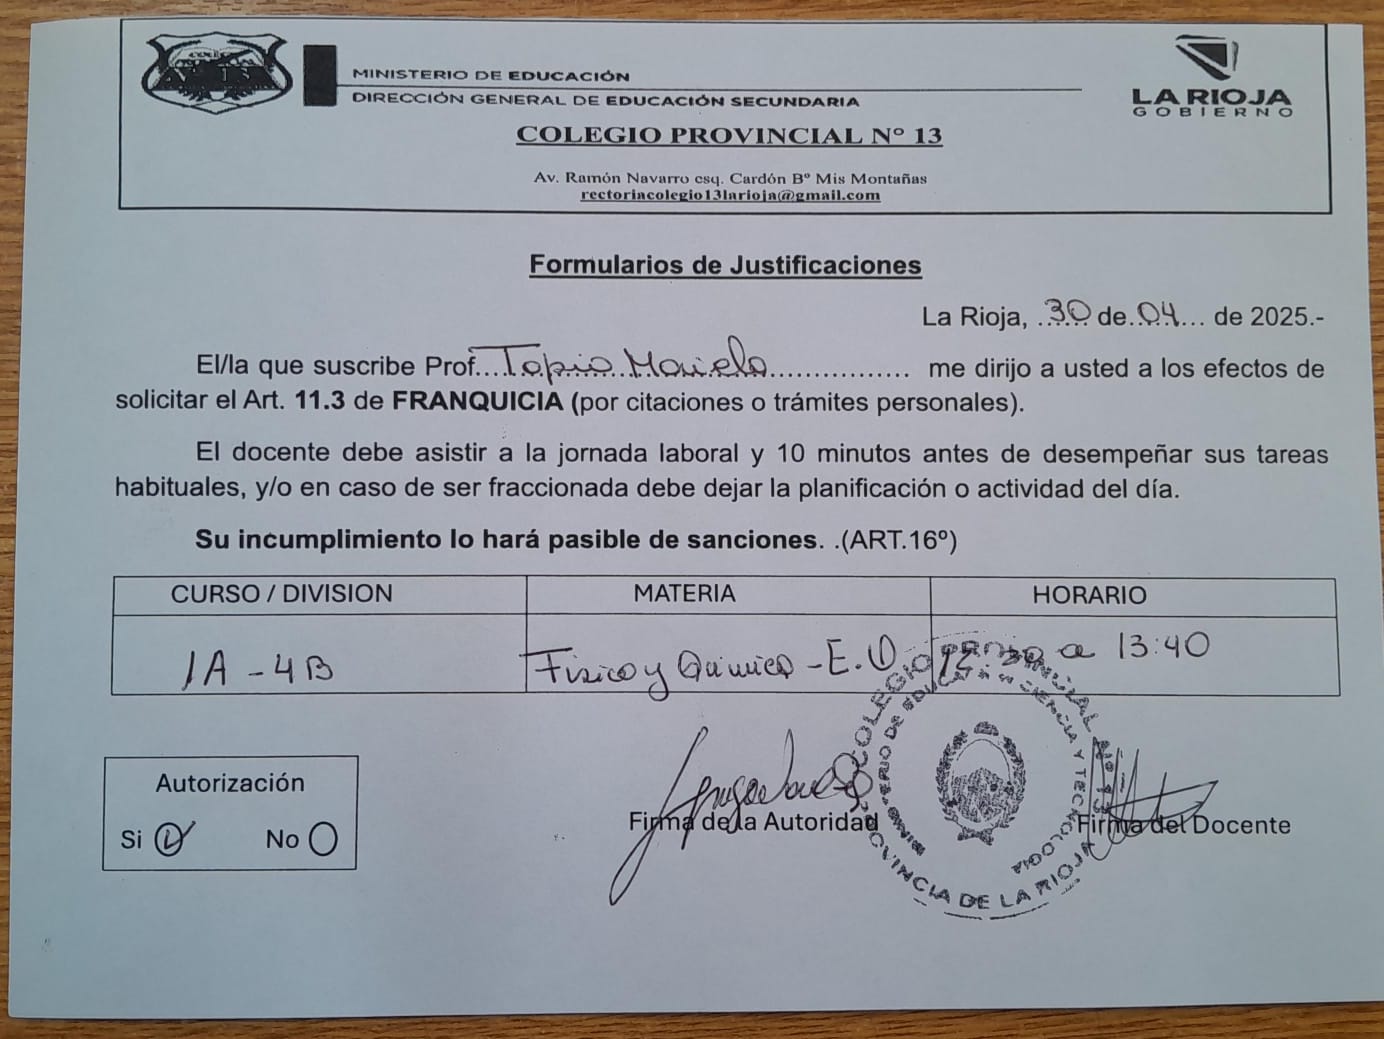 MINISTERIO DE EDUCACIÓN
DIRECCIÓN GENERAL DE EDUCACIÓN SECUNDARIA
LA RIOJA
GOBIERNO
COLEGIO PROVINCIAL Nº 13
Av. Ramón Navarro esq. Cardón Bº Mis Montañas
rectoriacolegio13larioja@gmail.com
Formularios de Justificaciones
La Rioja, 30 de 04 de 2025.-
El/la que suscribe Prof. Tapia Mariela me dirijo a usted a los efectos de
solicitar el Art. 11.3 de FRANQUICIA (por citaciones o trámites personales).
El docente debe asistir a la jornada laboral y 10 minutos antes de desempeñar sus tareas
habituales, y/o en caso de ser fraccionada debe dejar la planificación o actividad del día.
Su incumplimiento lo hará pasible de sanciones. .(ART.16º)
CURSO / DIVISION MATERIA HORARIO
1A - 4B Física y Química - E. a 13:40
COLEGIO PROVINCIAL Nº 13
MINISTERIO DE EDUCACIÓN CIENCIA Y TECNOLOGIA
PROVINCIA DE LA RIOJA
Autorización
Si No
Firma de la Autoridad Firma del Docente